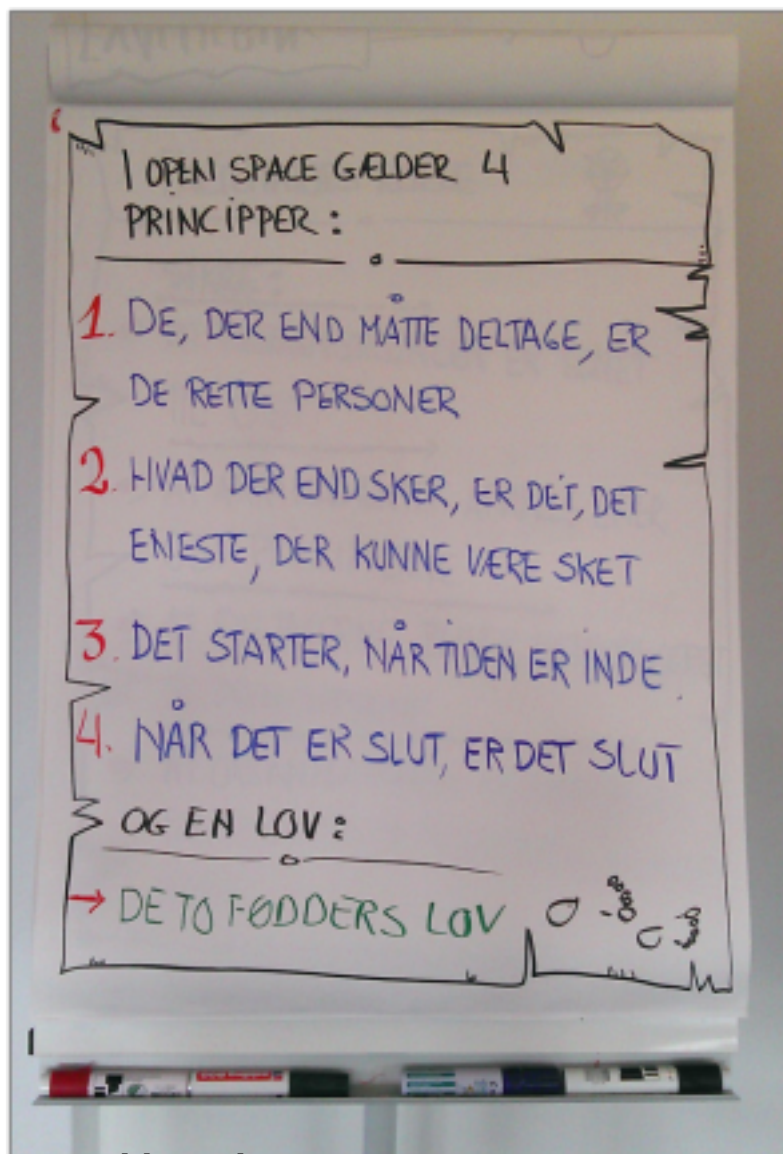 I OPEN SPACE GÆLDER 4
PRINCIPPER:
1. DE, DER END MÅTTE DELTAGE, ER
DE RETTE PERSONER
2. HVAD DER END SKER, ER DET, DET
ENESTE, DER KUNNE VÆRE SKET
3. DET STARTER, NÅR TIDEN ER INDE.
4. NÅR DET ER SLUT, ER DET SLUT
OG EN LOV:
→ DE TO FØDDERS LOV